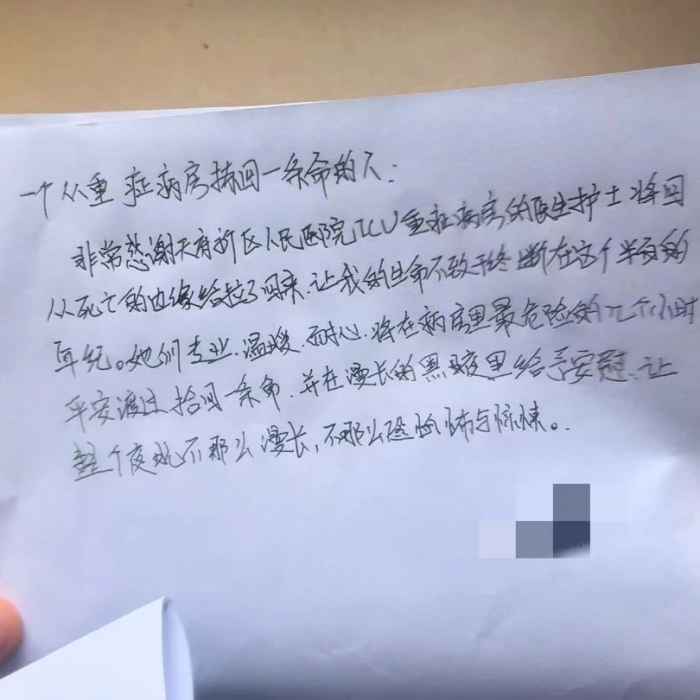 一个从重症病房捡回一条命的人:
非常感谢天府新区人民医院ICU重症病房的医生护士将因
从死亡的边缘给拉了回来,让我的生命不致于终断在这个半百的
年纪。她们专业、温暖、耐心,将在病房里最危险的几个小时
平安渡过拾回一条命,并在漫长的黑暗里给予安慰,让
整个夜晚不那么漫长,不那么恐怖与惊悚。